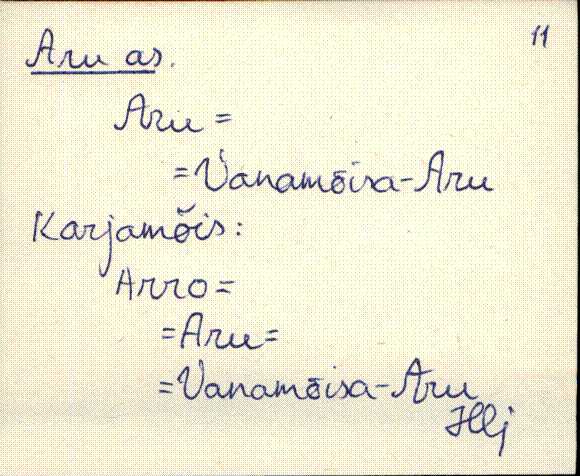 11
Aru as.
Aru =
= Vanamõisa-Aru
Karjamõis:
Arro =
= Aru =
= Vanamõisa-Aru